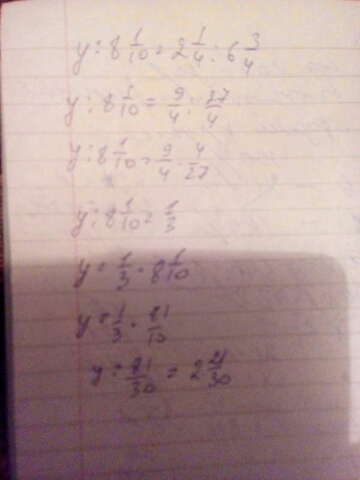 y : 8 1/10 = 2 1/4 : 6 3/4
y : 8 1/10 = 9/4 : 27/4
y : 8 1/10 = 9/4 · 4/27
y : 8 1/10 = 1/3
y = 1/3 · 8 1/10
y = 1/3 · 81/10
y = 81/30 = 2 21/30